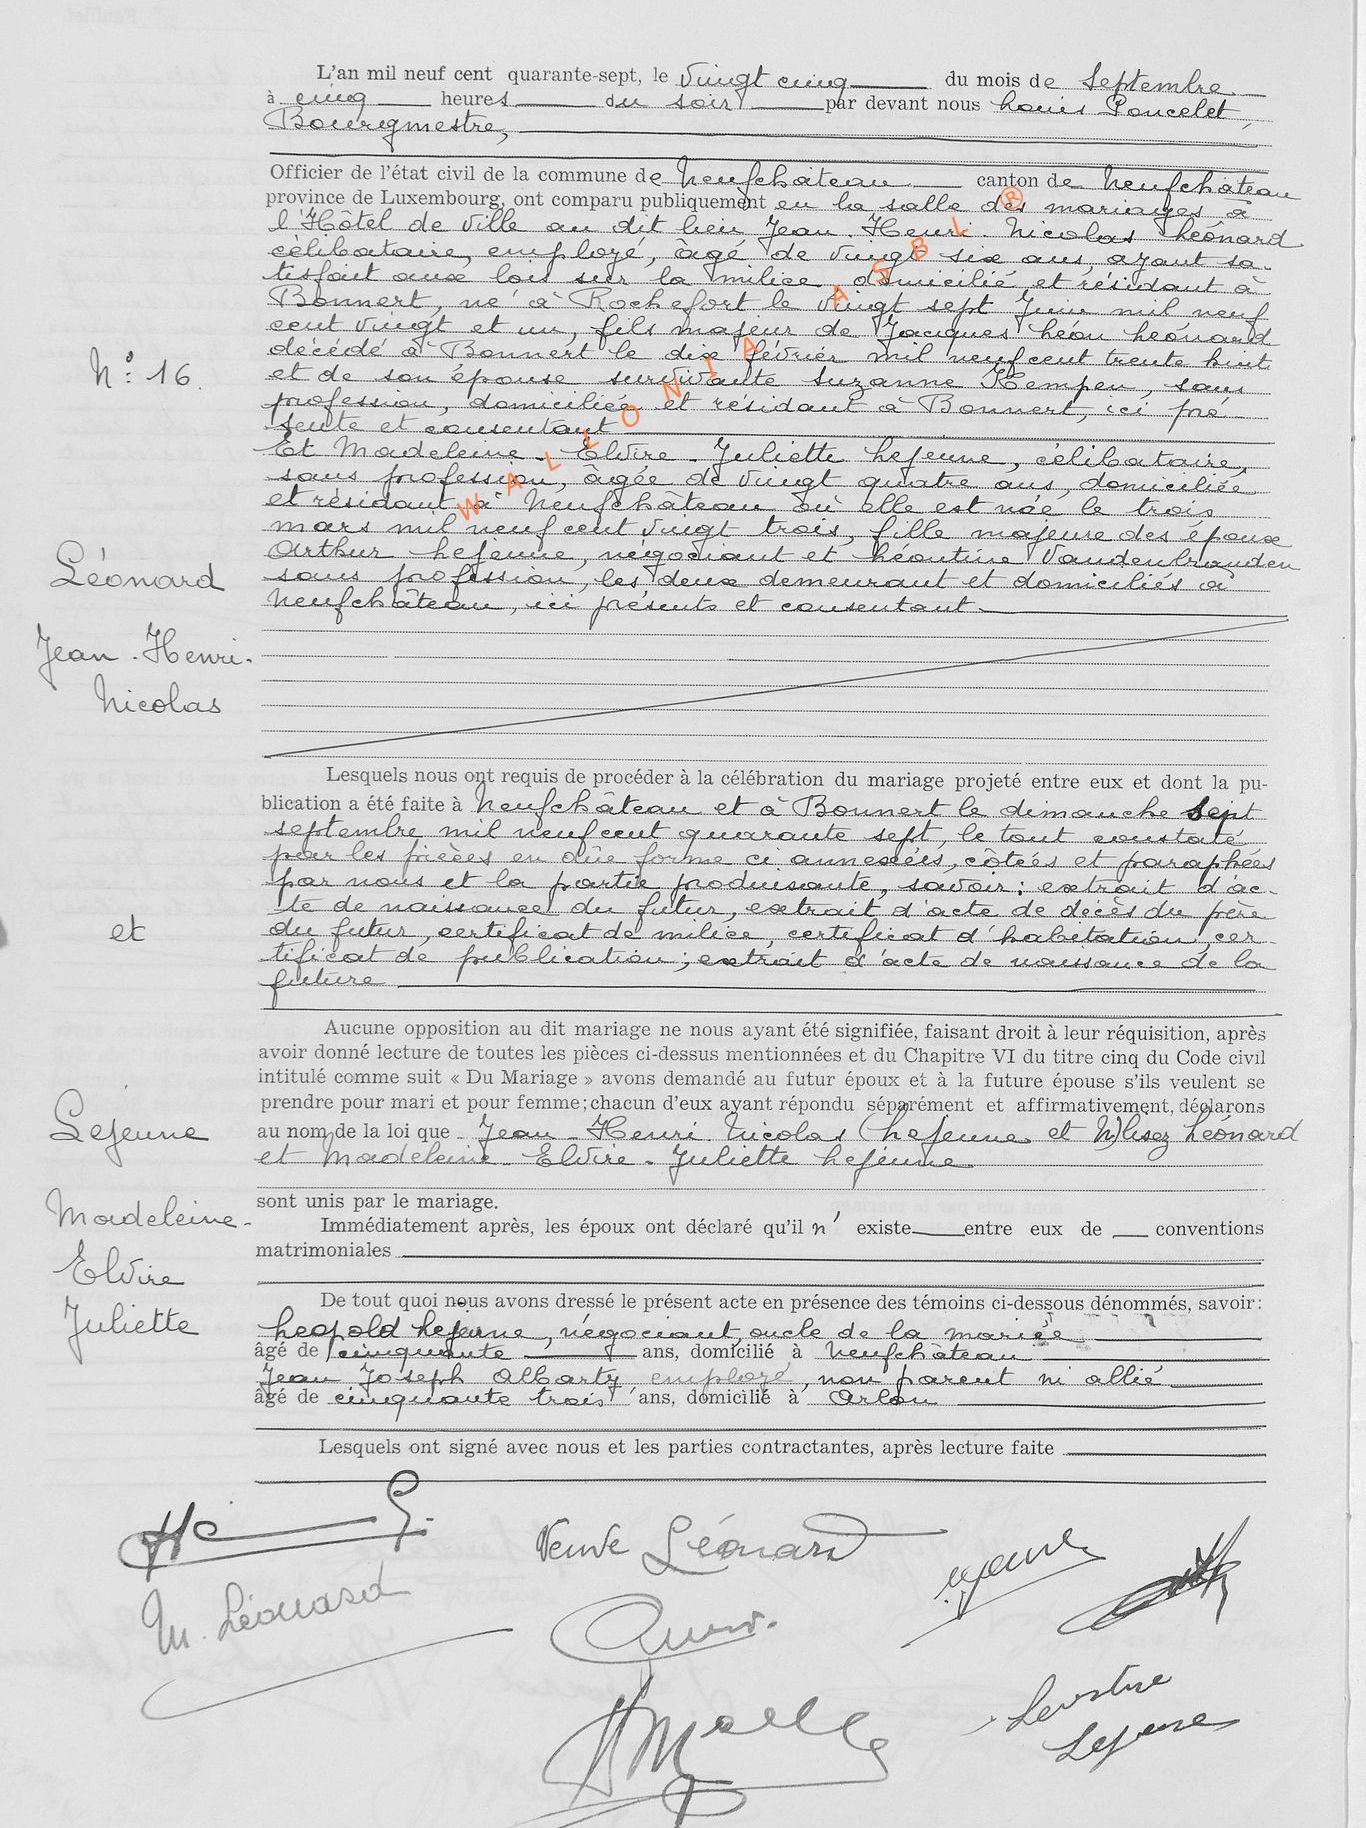 L'an mil neuf cent quarante-sept, le vingt cinq du mois de septembre
à cinq heures du soir par devant nous Louis Poncelet,
Bourgmestre,
Officier de l'état civil de la commune de Neufchâteau canton de Neufchâteau
province de Luxembourg, ont comparu publiquement en la salle des mariages à
l'Hôtel de ville au dit lieu Jean-Henri-Nicolas Léonard
célibataire, employé, âgé de vingt six ans, ayant sa-
tisfait aux lois sur la milice, domicilié et résidant à
Bonnert, né à Rochefort le vingt sept Juin mil neuf
cent vingt et un, fils majeur de Jacques Léon Léonard
décédé à Bonnert le dix février mil neuf cent trente huit
N° 16.
et de son épouse survivante Suzanne Kempen, sans
profession, domiciliée et résidant à Bonnert, ici pré-
sente et consentant
Et Madeleine-Elvire-Juliette Lejeune, célibataire,
sans profession, âgée de vingt quatre ans, domiciliée
et résidant à Neufchâteau où elle est née le trois
mars mil neuf cent vingt trois, fille majeure des époux
Arthur Lejeune, négociant et Léontine Vandenbranden
sans profession, les deux demeurant et domiciliés à
Neufchâteau, ici présents et consentant
WALLONIA ASBL ®
Léonard
Jean-Henri-
Nicolas
Lesquels nous ont requis de procéder à la célébration du mariage projeté entre eux et dont la pu-
blication a été faite à Neufchâteau et à Bonnert le dimanche sept
septembre mil neuf cent quarante sept, le tout constaté
par les pièces en dûe forme ci annexées, côtées et paraphées
par nous et la partie produisante, savoir: extrait d'ac-
te de naissance du futur, extrait d'acte de décès du père
du futur, certificat de milice, certificat d'habitation, cer-
tificat de publication; extrait d'acte de naissance de la
future
et
Aucune opposition au dit mariage ne nous ayant été signifiée, faisant droit à leur réquisition, après
avoir donné lecture de toutes les pièces ci-dessus mentionnées et du Chapitre VI du titre cinq du Code civil
intitulé comme suit « Du Mariage » avons demandé au futur époux et à la future épouse s'ils veulent se
prendre pour mari et pour femme; chacun d'eux ayant répondu séparément et affirmativement, déclarons
au nom de la loi que Jean-Henri Nicolas (Lejeune et N) lisez Léonard
et Madeleine-Elvire-Juliette Lejeune
sont unis par le mariage.
Lejeune
Madeleine-
Elvire
Juliette
Immédiatement après, les époux ont déclaré qu'il n'existe entre eux de conventions
matrimoniales
De tout quoi nous avons dressé le présent acte en présence des témoins ci-dessous dénommés, savoir:
Léopold Lejeune, négociant, oncle de la mariée
âgé de cinquante ans, domicilié à Neufchâteau
Jean Joseph Albarty employé, non parent ni allié
âgé de cinquante trois ans, domicilié à Arlon
Lesquels ont signé avec nous et les parties contractantes, après lecture faite
Veuve Léonard
M. Léonard
Lejeune
Lejeune